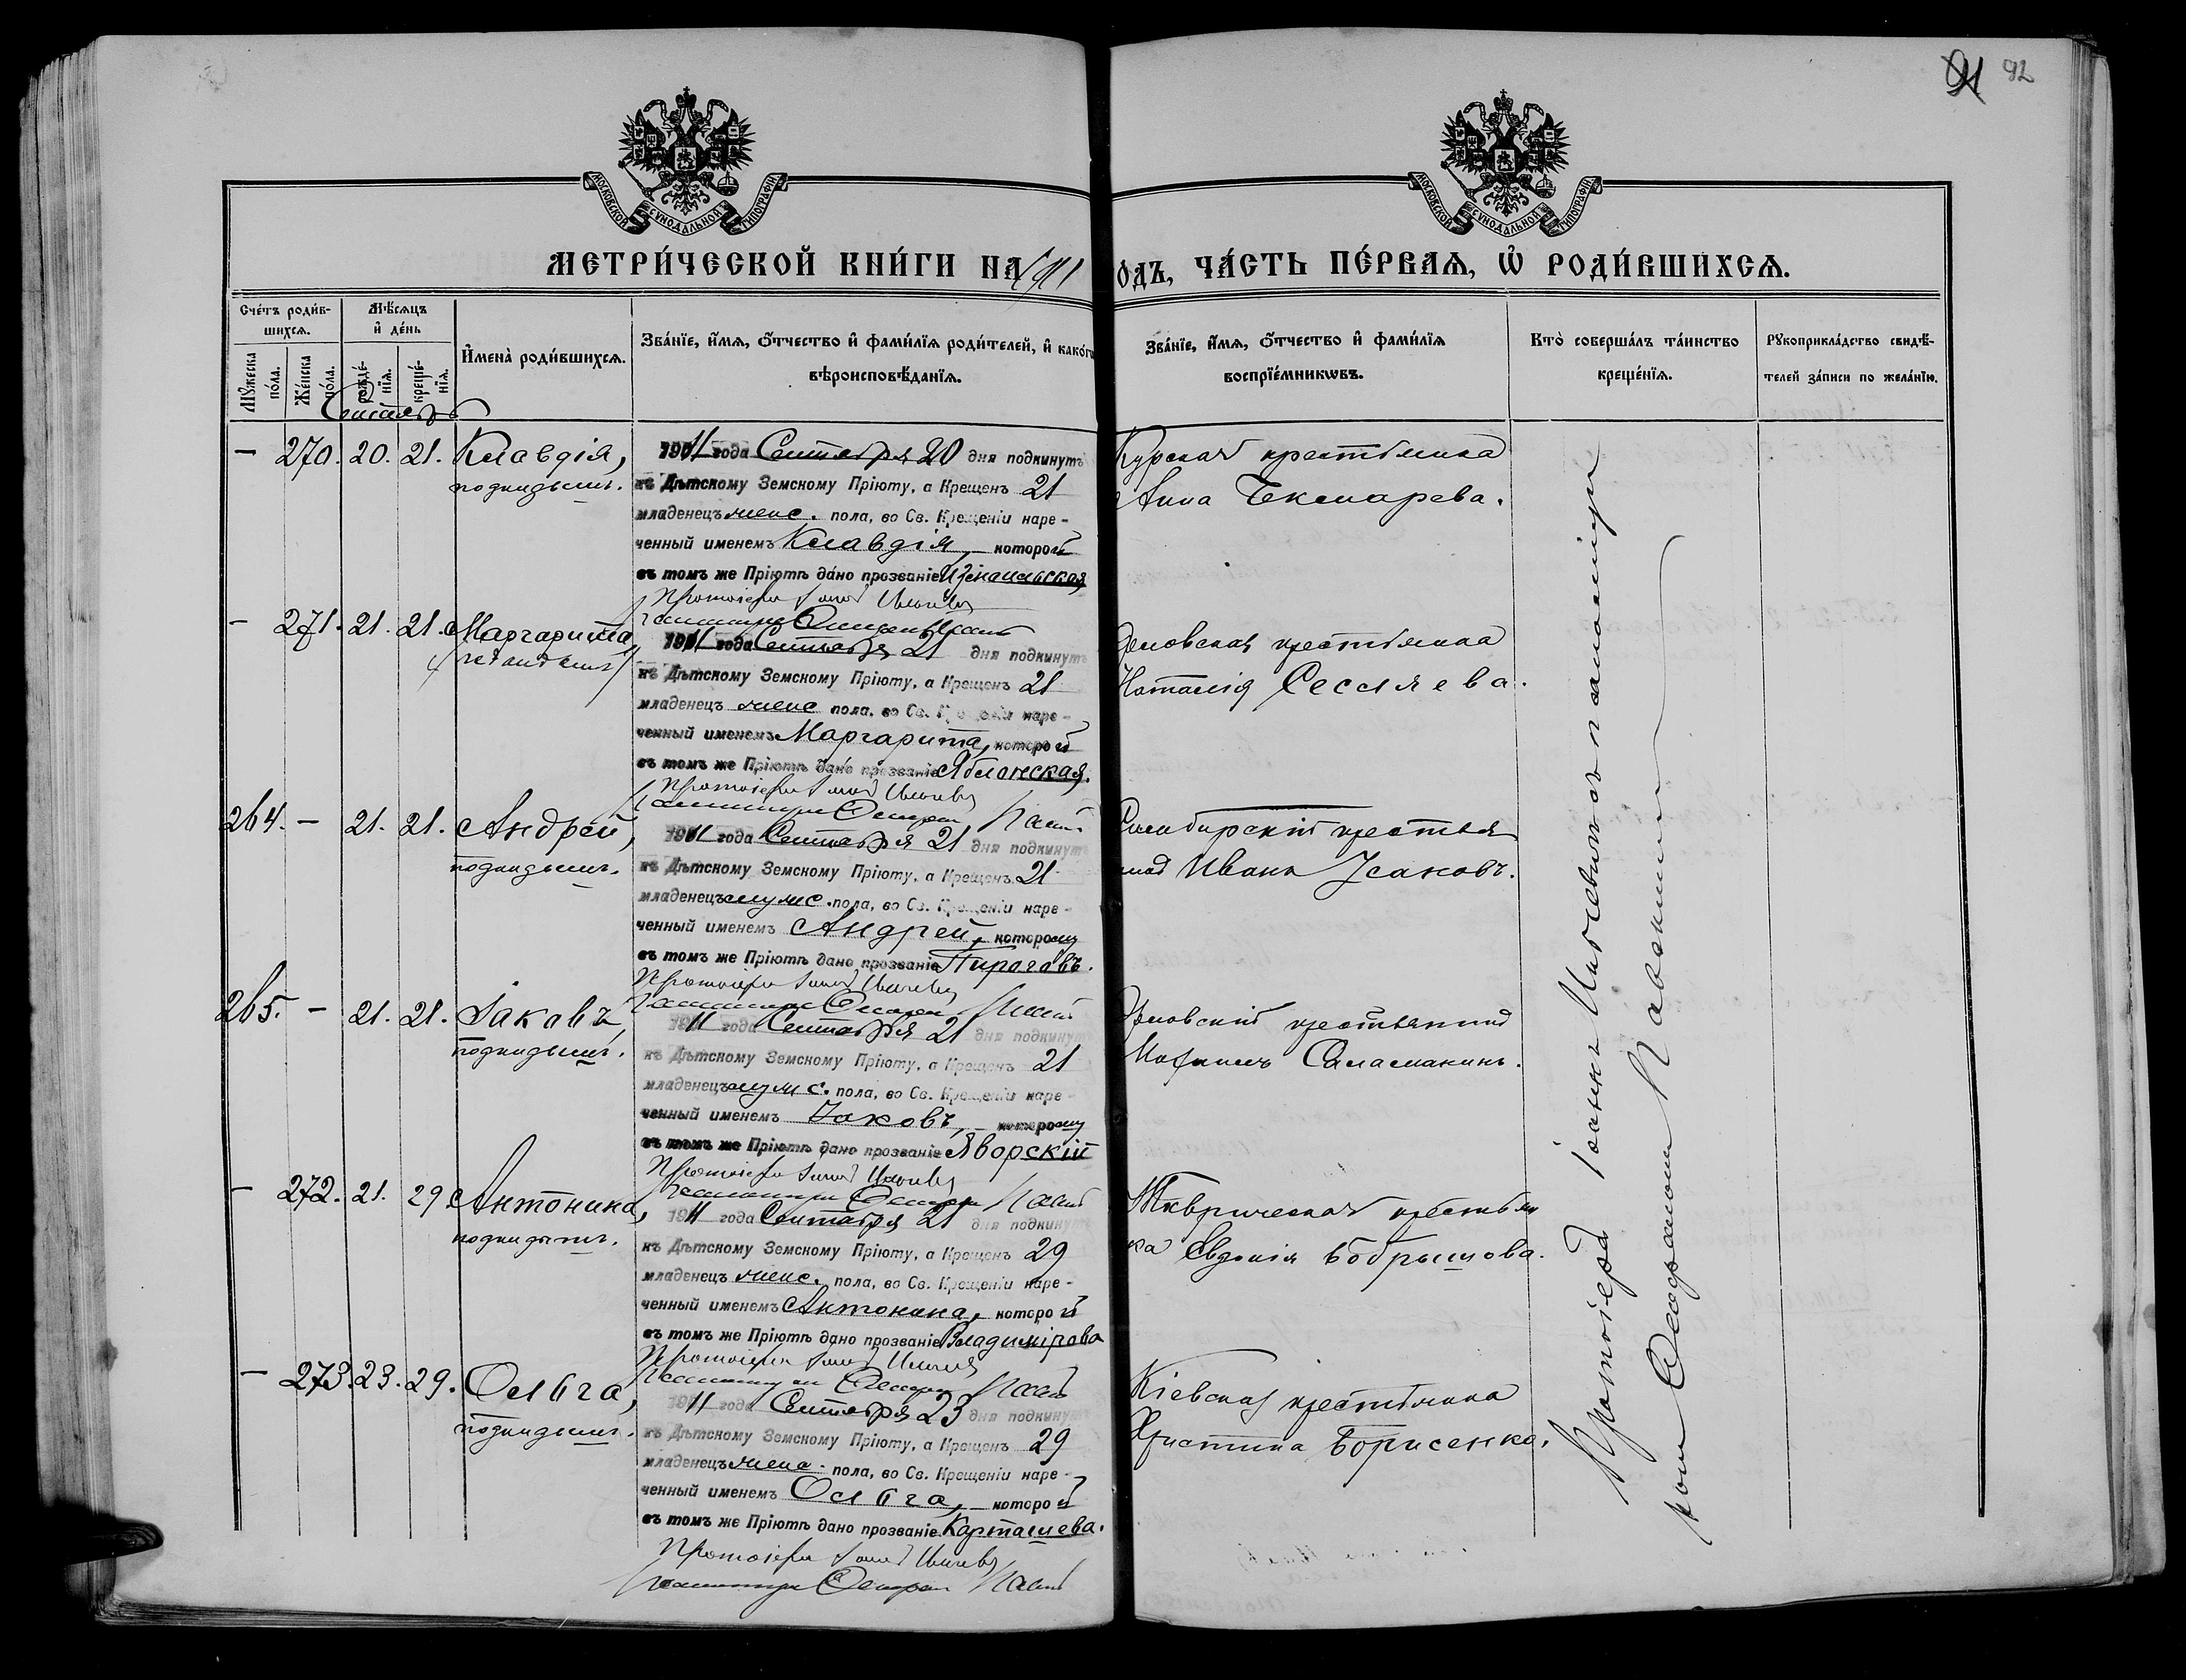 91 92
МОСКОВСКОЙ СѴНОДАЛЬНОЙ ТИПОГРАФІИ
МОСКОВСКОЙ СѴНОДАЛЬНОЙ ТИПОГРАФІИ
МЕТРИ́ЧЕСКОЙ КНИ́ГИ НА 1911
ОДЪ, ЧА́СТЬ ПЕ́РВАѦ, Ѡ РОДИ́ВШИХСѦ.
Сче́тъ роди́в-
шихсѧ.
Мѣ́сѧцъ
и҆ де́нь
Мꙋжеска по́ла.
Же́нска по́ла.
рожде́-нїѧ.
креще́-нїѧ.
И҆мена̀ роди́вшихсѧ.
Зва́нїе, и҆́мѧ, ѻ҆́тчество и҆ фами́лїѧ роди́телей, и҆ како́гѡ
вѣроисповѣ́данїѧ.
Зва́нїе, и҆́мѧ, ѻ҆́тчество и҆ фами́лїѧ
воспрїе́мникѡвъ.
Кто̀ соверша́лъ та́инство
креще́нїѧ.
Рꙋкоприкла́дство свидѣ́-
телей за́писи по жела́нїю.
Сентябрь
– 270. 20. 21. Клавдія,
подкидышъ.
1911 года Сентября 20 дня подкинутъ
къ Дѣтскому Земскому Пріюту, а Крещенъ 21
младенецъ женс. пола, во Св. Крещеніи наре-
ченный именемъ Клавдія, которой
въ томъ же Пріютѣ дано прозваніе Измаильская
Протоіерей
Курская крестьянка
Анна Чекмарева.
– 271. 21. 21. Маргарита,
подкидышъ
1911 года Сентября 21 дня подкинутъ
къ Дѣтскому Земскому Пріюту, а Крещенъ 21
младенецъ женс пола, во Св. Крещеніи наре-
ченный именемъ Маргарита, которой
въ томъ же Пріютѣ дано прозваніе Яблонская.
Протоіерей
Орловская крестьянка
Наталія Сесляева.
264. – 21. 21. Андрей,
подкидышъ.
1911 года Сентября 21 дня подкинутъ
къ Дѣтскому Земскому Пріюту, а Крещенъ 21
младенецъ мужс. пола, во Св. Крещеніи наре-
ченный именемъ Андрей, которому
въ томъ же Пріютѣ дано прозваніе Пироговъ.
Протоіерей
Симбирскій крестья
Иванъ Усаковъ.
265. – 21. 21. Іаковъ
подкидышъ.
1911 года Сентября 21 дня подкинутъ
къ Дѣтскому Земскому Пріюту, а Крещенъ 21
младенецъ мужс. пола, во Св. Крещеніи наре-
ченный именемъ Іаковъ, которому
въ томъ же Пріютѣ дано прозваніе Яворскій
Протоіерей
Орловскій крестьянинъ
– 272. 21. 29 Антонина,
подкидышъ.
1911 года Сентября 21 дня подкинутъ
къ Дѣтскому Земскому Пріюту, а Крещенъ 29
младенецъ женс. пола, во Св. Крещеніи наре-
ченный именемъ Антонина, которой
въ томъ же Пріютѣ дано прозваніе Владимірова
Протоіерей
Таврическая крестьян
ка Евдокія Бобрышова.
– 273. 23. 29. Ольга,
подкидышъ.
1911 года Сентября 23 дня подкинутъ
къ Дѣтскому Земскому Пріюту, а Крещенъ 29
младенецъ женс. пола, во Св. Крещеніи наре-
ченный именемъ Ольга, которой
въ томъ же Пріютѣ дано прозваніе Карташева.
Протоіерей
Кіевская крестьянка
Христина Борисенко.
Протоіерей Іоаннъ съ псаломщи
комъ